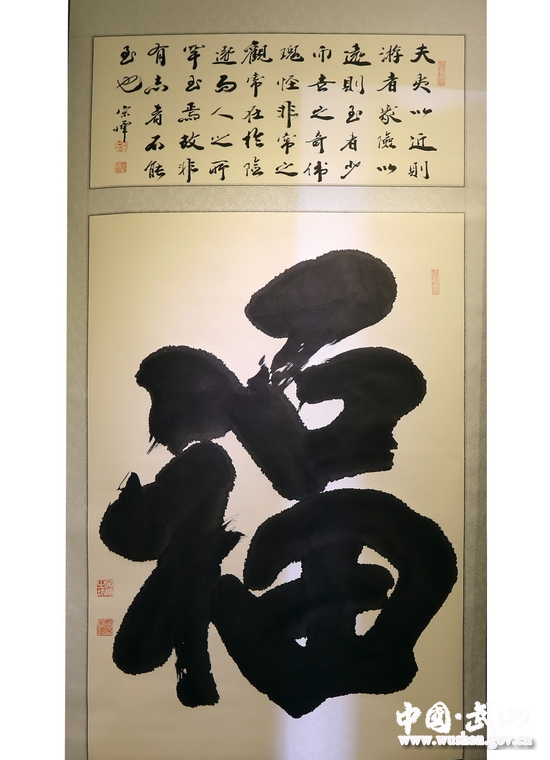 夫夷以近則
游者衆險以
遠則至者少
而世之奇偉
瑰怪非常之
觀常在於險
遠而人之所
罕至焉故非
有志者不能
至也 宗暉
福
中國·武山
www.wushan.gov.cn